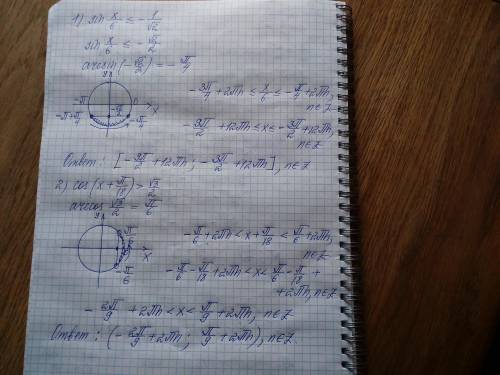 1) sin x/6 ≤ -1/√2
sin x/6 ≤ -√2/2
arcsin(-√2/2) = -π/4
y
-3π/4 + 2πn ≤ x/6 ≤ -π/4 + 2πn,
n∈Z
-π -π/2 0 x
-π+π/4 -π/4
+12πn ≤ x ≤ -3π/2 + 12πn,
n∈Z
Ответ: + 12πn; -3π/2 + 12πn], n∈Z
2) cos(x + π/18) > √3/2
arccos √3/2 = π/6
y
π/6
-π/6 + 2πn < x + π/18 < π/6 + 2πn,
n∈Z
x
-π/6
-π/6 - π/18 + 2πn < x < π/6 - π/18 +
+ 2πn, n∈Z
-2π/9 + 2πn < x < π/9 + 2πn, n∈Z
Ответ: (-2π/9 + 2πn; π/9 + 2πn), n∈Z.